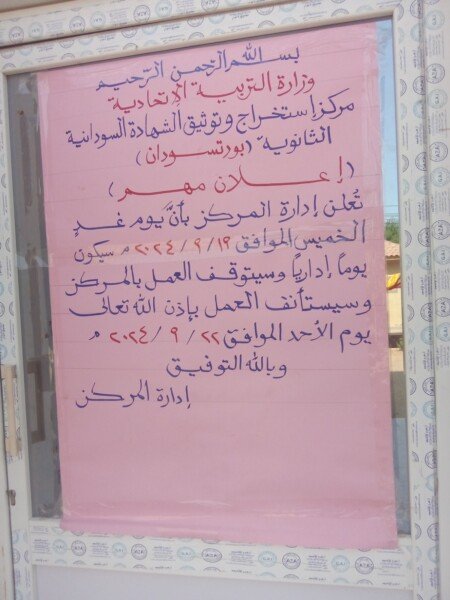 بسم الله الرحمن الرحيم
وزارة التربية الإتحادية
مركز إستخراج وتوثيق الشهادة السودانية
الثانوية (بورتسودان)
(إعلان مهم)
تُعلن إدارة المركز بأنَّ يوم غدٍ
الخميس الموافق ١٩/٩/٢٠٢٤م سيكون
يوماً إدارياً وسيتوقف العمل بالمركز
وسيستأنف العمل بإذن الله تعالى
يوم الأحد الموافق ٢٢/٩/٢٠٢٤م
وبالله التوفيق
إدارة المركز